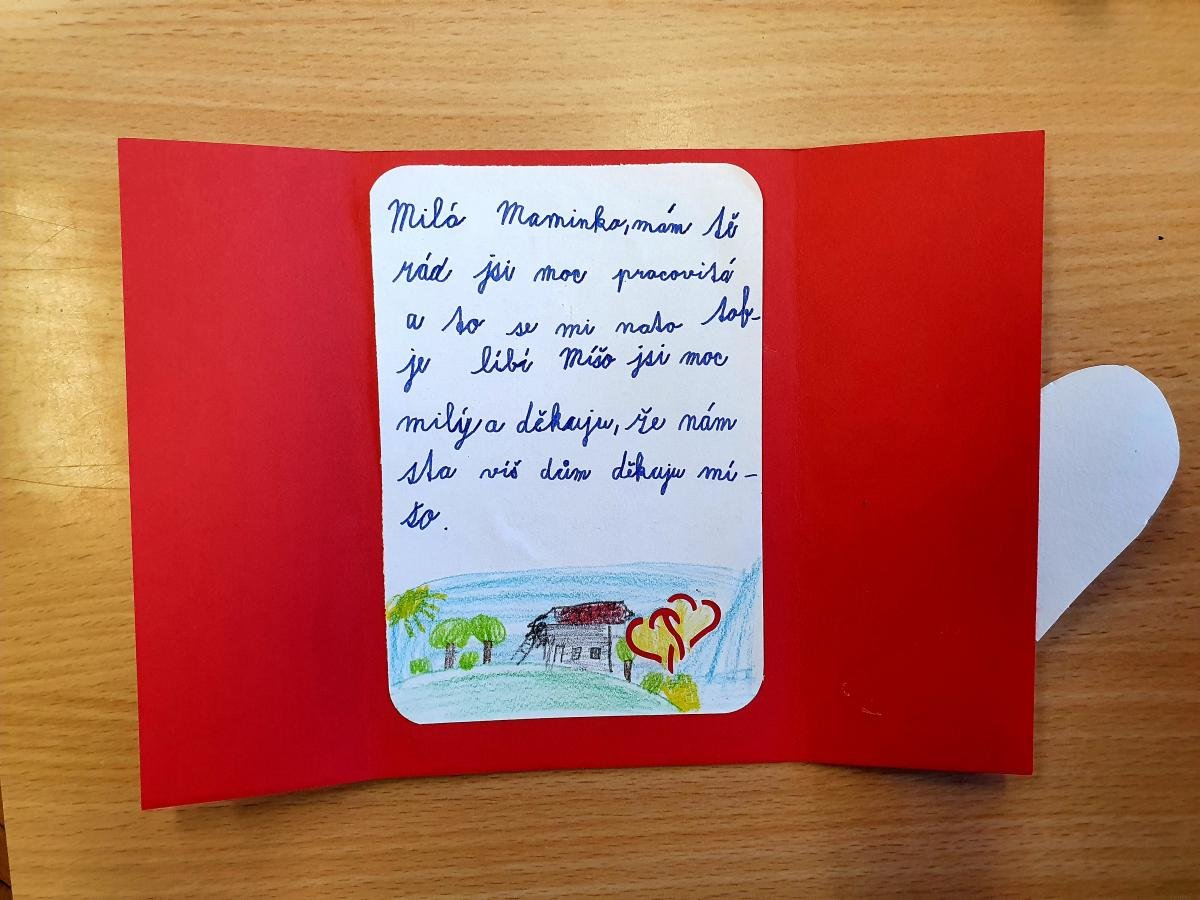 Milá Maminko, mám tě
rád jsi moc pracovitá
a to se mi nato tob-
je líbí Míšo jsi moc
milý a děkuju, že nám
sta víš dům děkuju mí-
šo.